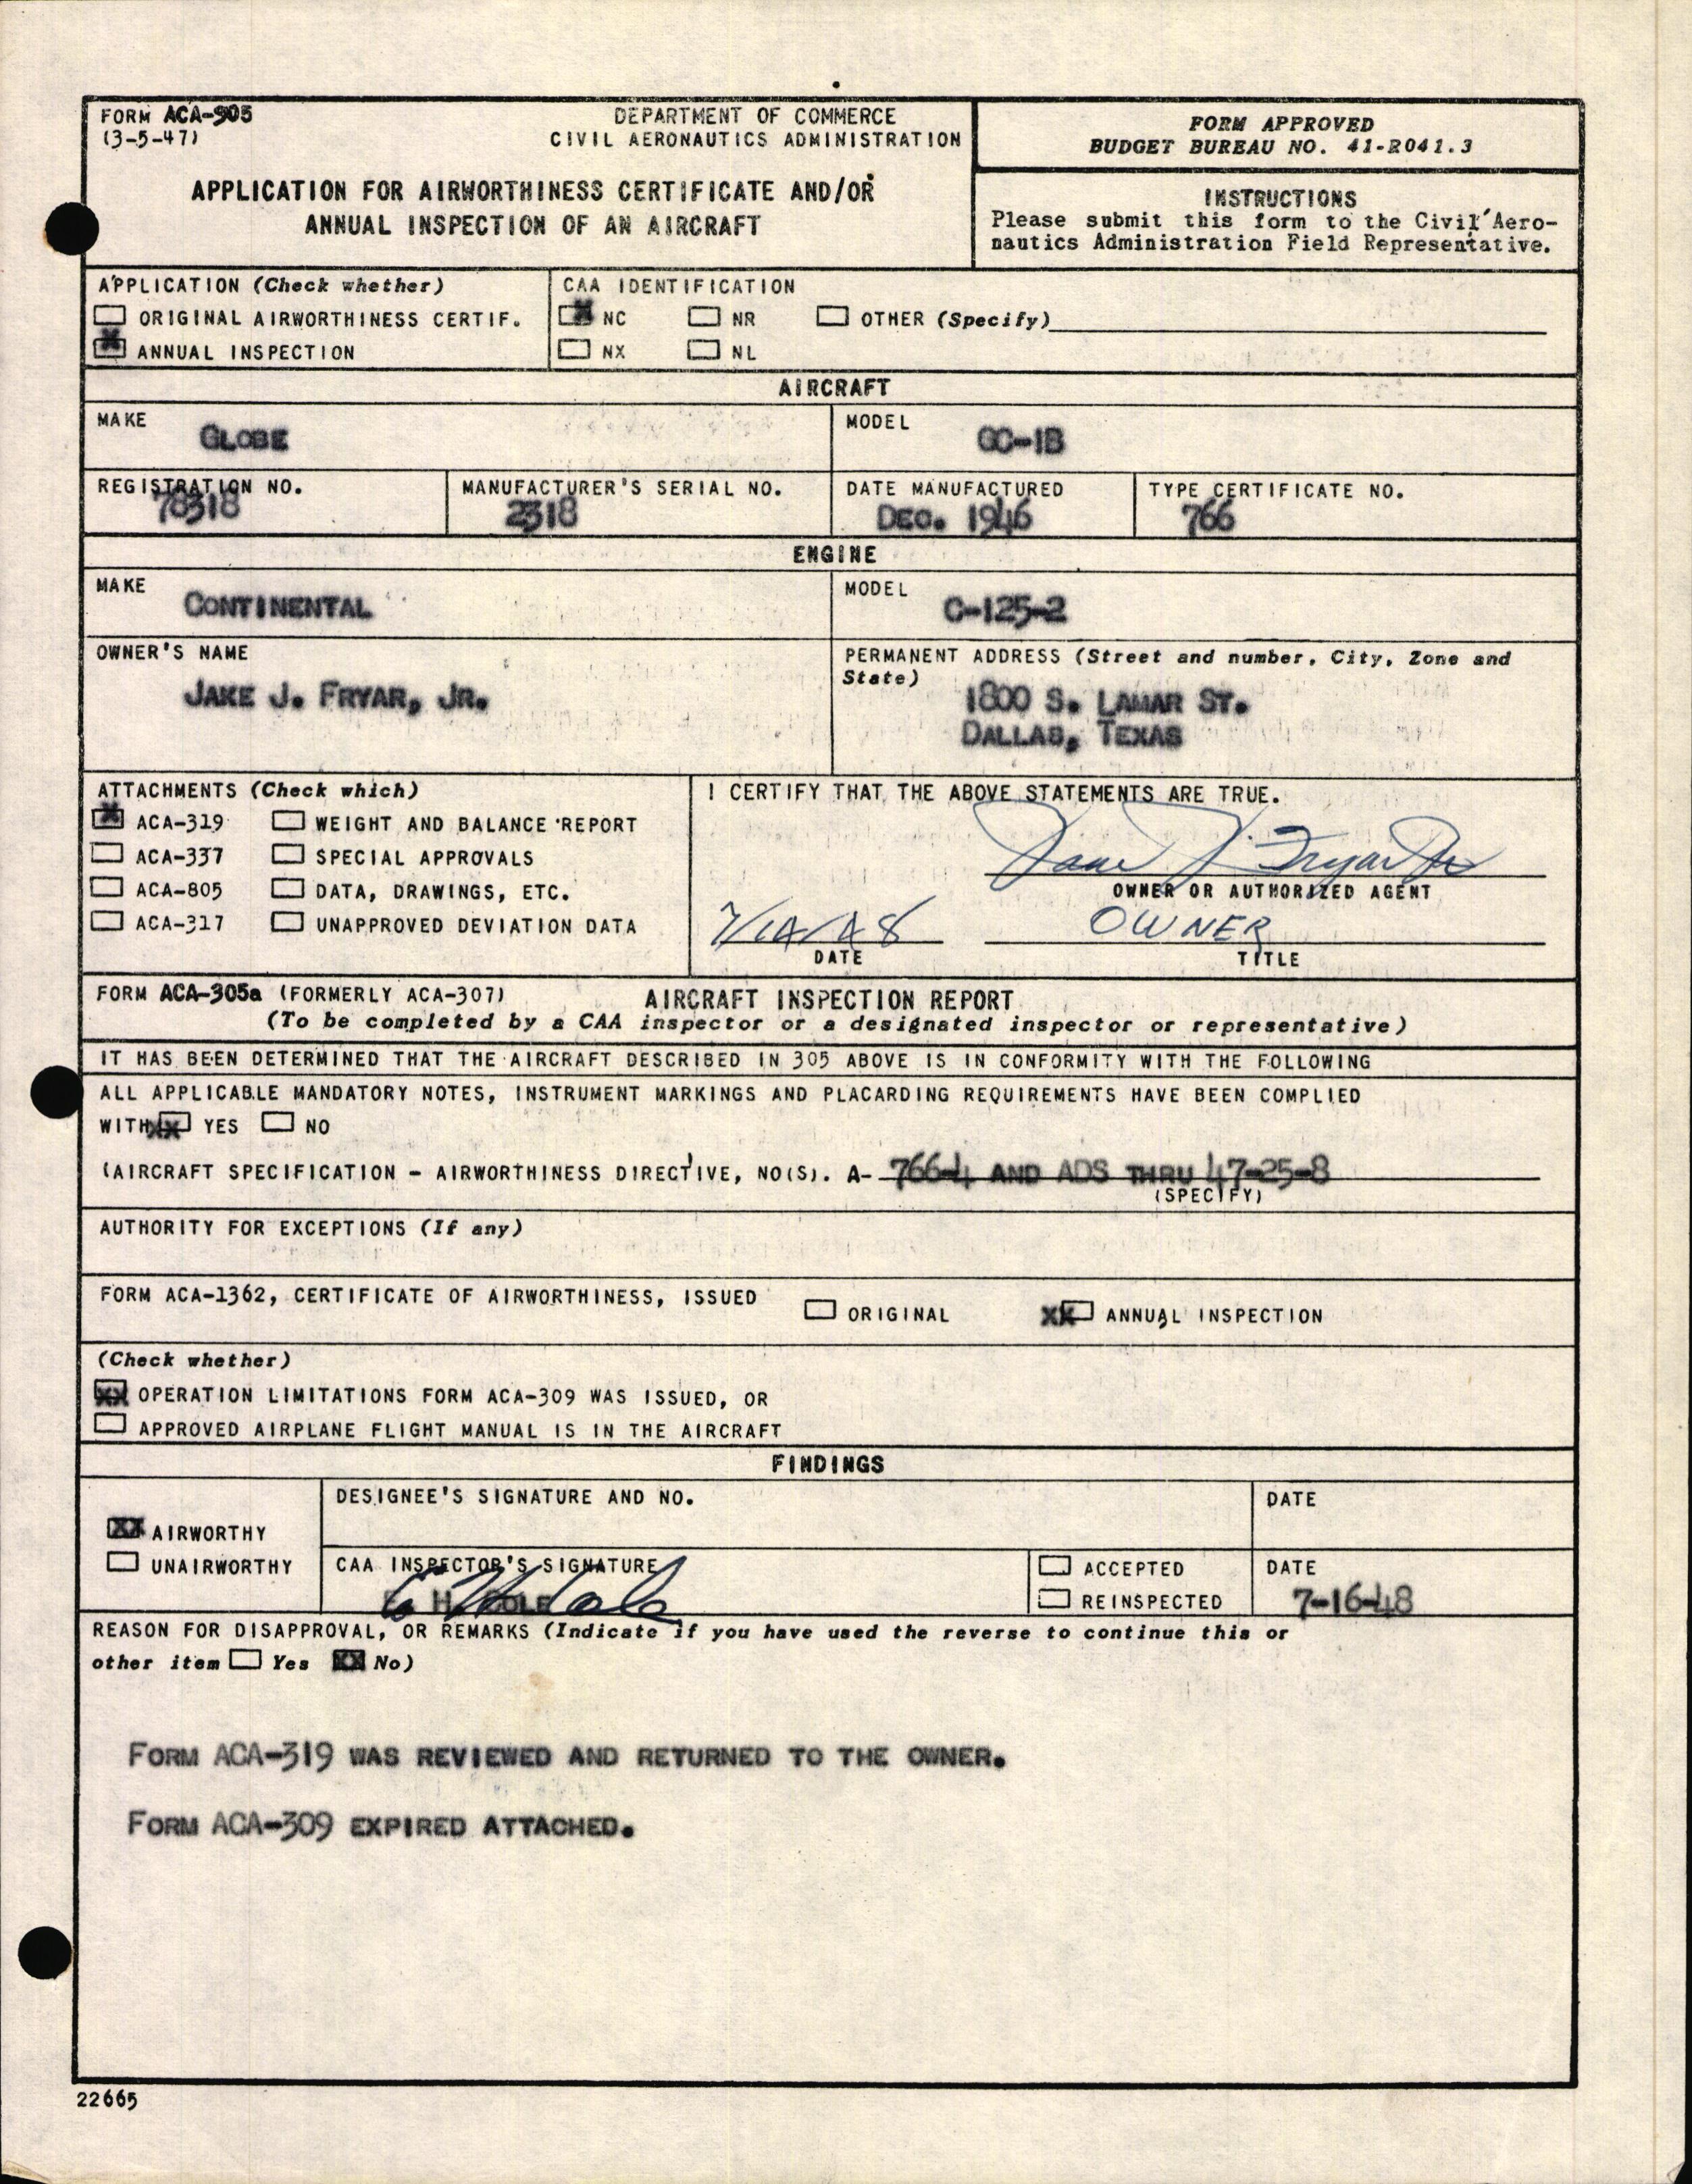 FORM ACA-305
(3-5-47)
DEPARTMENT OF COMMERCE
CIVIL AERONAUTICS ADMINISTRATION
APPLICATION FOR AIRWORTHINESS CERTIFICATE AND/OR
ANNUAL INSPECTION OF AN AIRCRAFT
FORM APPROVED
BUDGET BUREAU NO. 41-R041.3
INSTRUCTIONS
Please submit this form to the Civil Aero-
nautics Administration Field Representative.
APPLICATION (Check whether)
ORIGINAL AIRWORTHINESS CERTIF.
X ANNUAL INSPECTION
CAA IDENTIFICATION
X NC NR OTHER (Specify)
NX NL
AIRCRAFT
MAKE
GLOBE
MODEL
GC-1B
REGISTRATION NO.
78318
MANUFACTURER'S SERIAL NO.
2318
DATE MANUFACTURED
DEC. 1946
TYPE CERTIFICATE NO.
766
ENGINE
MAKE
CONTINENTAL
MODEL
C-125-2
OWNER'S NAME
JAKE J. FRYAR, JR.
PERMANENT ADDRESS (Street and number, City, Zone and
State)
1800 S. LAMAR ST.
DALLAS, TEXAS
ATTACHMENTS (Check which)
X ACA-319 WEIGHT AND BALANCE REPORT
ACA-337 SPECIAL APPROVALS
ACA-805 DATA, DRAWINGS, ETC.
ACA-317 UNAPPROVED DEVIATION DATA
I CERTIFY THAT THE ABOVE STATEMENTS ARE TRUE.
J. Fryar Jr
OWNER OR AUTHORIZED AGENT
OWNER
DATE
TITLE
FORM ACA-305a (FORMERLY ACA-307) AIRCRAFT INSPECTION REPORT
(To be completed by a CAA inspector or a designated inspector or representative)
IT HAS BEEN DETERMINED THAT THE AIRCRAFT DESCRIBED IN 305 ABOVE IS IN CONFORMITY WITH THE FOLLOWING
ALL APPLICABLE MANDATORY NOTES, INSTRUMENT MARKINGS AND PLACARDING REQUIREMENTS HAVE BEEN COMPLIED
WITH XX YES NO
(AIRCRAFT SPECIFICATION - AIRWORTHINESS DIRECTIVE, NO(S). A- 766-4 AND ADS THRU 47-25-8
(SPECIFY)
AUTHORITY FOR EXCEPTIONS (If any)
FORM ACA-1362, CERTIFICATE OF AIRWORTHINESS, ISSUED ORIGINAL XX ANNUAL INSPECTION
(Check whether)
XX OPERATION LIMITATIONS FORM ACA-309 WAS ISSUED, OR
APPROVED AIRPLANE FLIGHT MANUAL IS IN THE AIRCRAFT
FINDINGS
XX AIRWORTHY
UNAIRWORTHY
DESIGNEE'S SIGNATURE AND NO.
DATE
CAA INSPECTOR'S SIGNATURE
H. COLE
ACCEPTED
REINSPECTED
DATE
7-16-48
REASON FOR DISAPPROVAL, OR REMARKS (Indicate if you have used the reverse to continue this or
other item Yes XX No)
FORM ACA-319 WAS REVIEWED AND RETURNED TO THE OWNER.
FORM ACA-309 EXPIRED ATTACHED.
22665